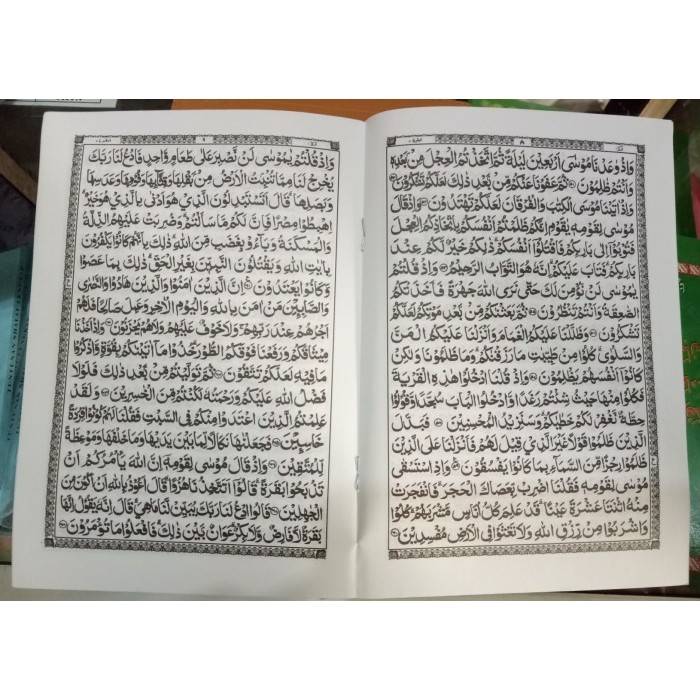 ٨
وَاِذْ وٰعَدْنَا مُوْسٰٓى اَرْبَعِيْنَ لَيْلَةً ثُمَّ اتَّخَذْتُمُ الْعِجْلَ مِنْۢ بَعْدِهٖ
وَاَنْتُمْ ظٰلِمُوْنَ ۝ ثُمَّ عَفَوْنَا عَنْكُمْ مِّنْۢ بَعْدِ ذٰلِكَ لَعَلَّكُمْ تَشْكُرُوْنَ ۝
وَاِذْ اٰتَيْنَا مُوْسَى الْكِتٰبَ وَالْفُرْقَانَ لَعَلَّكُمْ تَهْتَدُوْنَ ۝ وَاِذْ قَالَ
مُوْسٰى لِقَوْمِهٖ يٰقَوْمِ اِنَّكُمْ ظَلَمْتُمْ اَنْفُسَكُمْ بِاتِّخَاذِكُمُ الْعِجْلَ
فَتُوْبُوْٓا اِلٰى بَارِئِكُمْ فَاقْتُلُوْٓا اَنْفُسَكُمْ ذٰلِكُمْ خَيْرٌ لَّكُمْ عِنْدَ
بَارِئِكُمْ فَتَابَ عَلَيْكُمْ اِنَّهٗ هُوَ التَّوَّابُ الرَّحِيْمُ ۝ وَاِذْ قُلْتُمْ
يٰمُوْسٰى لَنْ نُّؤْمِنَ لَكَ حَتّٰى نَرَى اللّٰهَ جَهْرَةً فَاَخَذَتْكُمُ
الصّٰعِقَةُ وَاَنْتُمْ تَنْظُرُوْنَ ۝ ثُمَّ بَعَثْنٰكُمْ مِّنْۢ بَعْدِ مَوْتِكُمْ لَعَلَّكُمْ
تَشْكُرُوْنَ ۝ وَظَلَّلْنَا عَلَيْكُمُ الْغَمَامَ وَاَنْزَلْنَا عَلَيْكُمُ الْمَنَّ
وَالسَّلْوٰى كُلُوْا مِنْ طَيِّبٰتِ مَا رَزَقْنٰكُمْ وَمَا ظَلَمُوْنَا وَلٰكِنْ
كَانُوْٓا اَنْفُسَهُمْ يَظْلِمُوْنَ ۝ وَاِذْ قُلْنَا ادْخُلُوْا هٰذِهِ الْقَرْيَةَ
فَكُلُوْا مِنْهَا حَيْثُ شِئْتُمْ رَغَدًا وَّادْخُلُوا الْبَابَ سُجَّدًا وَّقُوْلُوْا
حِطَّةٌ نَّغْفِرْ لَكُمْ خَطٰيٰكُمْ وَسَنَزِيْدُ الْمُحْسِنِيْنَ ۝ فَبَدَّلَ
الَّذِيْنَ ظَلَمُوْا قَوْلًا غَيْرَ الَّذِيْ قِيْلَ لَهُمْ فَاَنْزَلْنَا عَلَى الَّذِيْنَ
ظَلَمُوْا رِجْزًا مِّنَ السَّمَآءِ بِمَا كَانُوْا يَفْسُقُوْنَ ۝ وَاِذِ اسْتَسْقٰى
مُوْسٰى لِقَوْمِهٖ فَقُلْنَا اضْرِبْ بِّعَصَاكَ الْحَجَرَ فَانْفَجَرَتْ
مِنْهُ اثْنَتَا عَشْرَةَ عَيْنًا قَدْ عَلِمَ كُلُّ اُنَاسٍ مَّشْرَبَهُمْ كُلُوْا
وَاشْرَبُوْا مِنْ رِّزْقِ اللّٰهِ وَلَا تَعْثَوْا فِى الْاَرْضِ مُفْسِدِيْنَ ۝
٩
وَاِذْ قُلْتُمْ يٰمُوْسٰى لَنْ نَّصْبِرَ عَلٰى طَعَامٍ وَّاحِدٍ فَادْعُ لَنَا رَبَّكَ
يُخْرِجْ لَنَا مِمَّا تُنْۢبِتُ الْاَرْضُ مِنْۢ بَقْلِهَا وَقِثَّآئِهَا وَفُوْمِهَا وَعَدَسِهَا
وَبَصَلِهَا قَالَ اَتَسْتَبْدِلُوْنَ الَّذِيْ هُوَ اَدْنٰى بِالَّذِيْ هُوَ خَيْرٌ
اِهْبِطُوْا مِصْرًا فَاِنَّ لَكُمْ مَّا سَاَلْتُمْ وَضُرِبَتْ عَلَيْهِمُ الذِّلَّةُ
وَالْمَسْكَنَةُ وَبَآءُوْ بِغَضَبٍ مِّنَ اللّٰهِ ذٰلِكَ بِاَنَّهُمْ كَانُوْا يَكْفُرُوْنَ
بِاٰيٰتِ اللّٰهِ وَيَقْتُلُوْنَ النَّبِيّٖنَ بِغَيْرِ الْحَقِّ ذٰلِكَ بِمَا عَصَوْا
وَّكَانُوْا يَعْتَدُوْنَ ۝ اِنَّ الَّذِيْنَ اٰمَنُوْا وَالَّذِيْنَ هَادُوْا وَالنَّصٰرٰى
وَالصّٰبِئِيْنَ مَنْ اٰمَنَ بِاللّٰهِ وَالْيَوْمِ الْاٰخِرِ وَعَمِلَ صَالِحًا فَلَهُمْ
اَجْرُهُمْ عِنْدَ رَبِّهِمْ وَلَا خَوْفٌ عَلَيْهِمْ وَلَا هُمْ يَحْزَنُوْنَ ۝ وَاِذْ اَخَذْنَا
مِيْثَاقَكُمْ وَرَفَعْنَا فَوْقَكُمُ الطُّوْرَ خُذُوْا مَآ اٰتَيْنٰكُمْ بِقُوَّةٍ وَّاذْكُرُوْا
مَا فِيْهِ لَعَلَّكُمْ تَتَّقُوْنَ ۝ ثُمَّ تَوَلَّيْتُمْ مِّنْۢ بَعْدِ ذٰلِكَ فَلَوْلَا
فَضْلُ اللّٰهِ عَلَيْكُمْ وَرَحْمَتُهٗ لَكُنْتُمْ مِّنَ الْخٰسِرِيْنَ ۝ وَلَقَدْ
عَلِمْتُمُ الَّذِيْنَ اعْتَدَوْا مِنْكُمْ فِى السَّبْتِ فَقُلْنَا لَهُمْ كُوْنُوْا قِرَدَةً
خَاسِئِيْنَ ۝ فَجَعَلْنٰهَا نَكَالًا لِّمَا بَيْنَ يَدَيْهَا وَمَا خَلْفَهَا وَمَوْعِظَةً
لِّلْمُتَّقِيْنَ ۝ وَاِذْ قَالَ مُوْسٰى لِقَوْمِهٖٓ اِنَّ اللّٰهَ يَاْمُرُكُمْ اَنْ
تَذْبَحُوْا بَقَرَةً قَالُوْٓا اَتَتَّخِذُنَا هُزُوًا قَالَ اَعُوْذُ بِاللّٰهِ اَنْ اَكُوْنَ مِنَ
الْجٰهِلِيْنَ ۝ قَالُوا ادْعُ لَنَا رَبَّكَ يُبَيِّنْ لَّنَا مَا هِيَ قَالَ اِنَّهٗ يَقُوْلُ اِنَّهَا
بَقَرَةٌ لَّا فَارِضٌ وَّلَا بِكْرٌ عَوَانٌۢ بَيْنَ ذٰلِكَ فَافْعَلُوْا مَا تُؤْمَرُوْنَ ۝